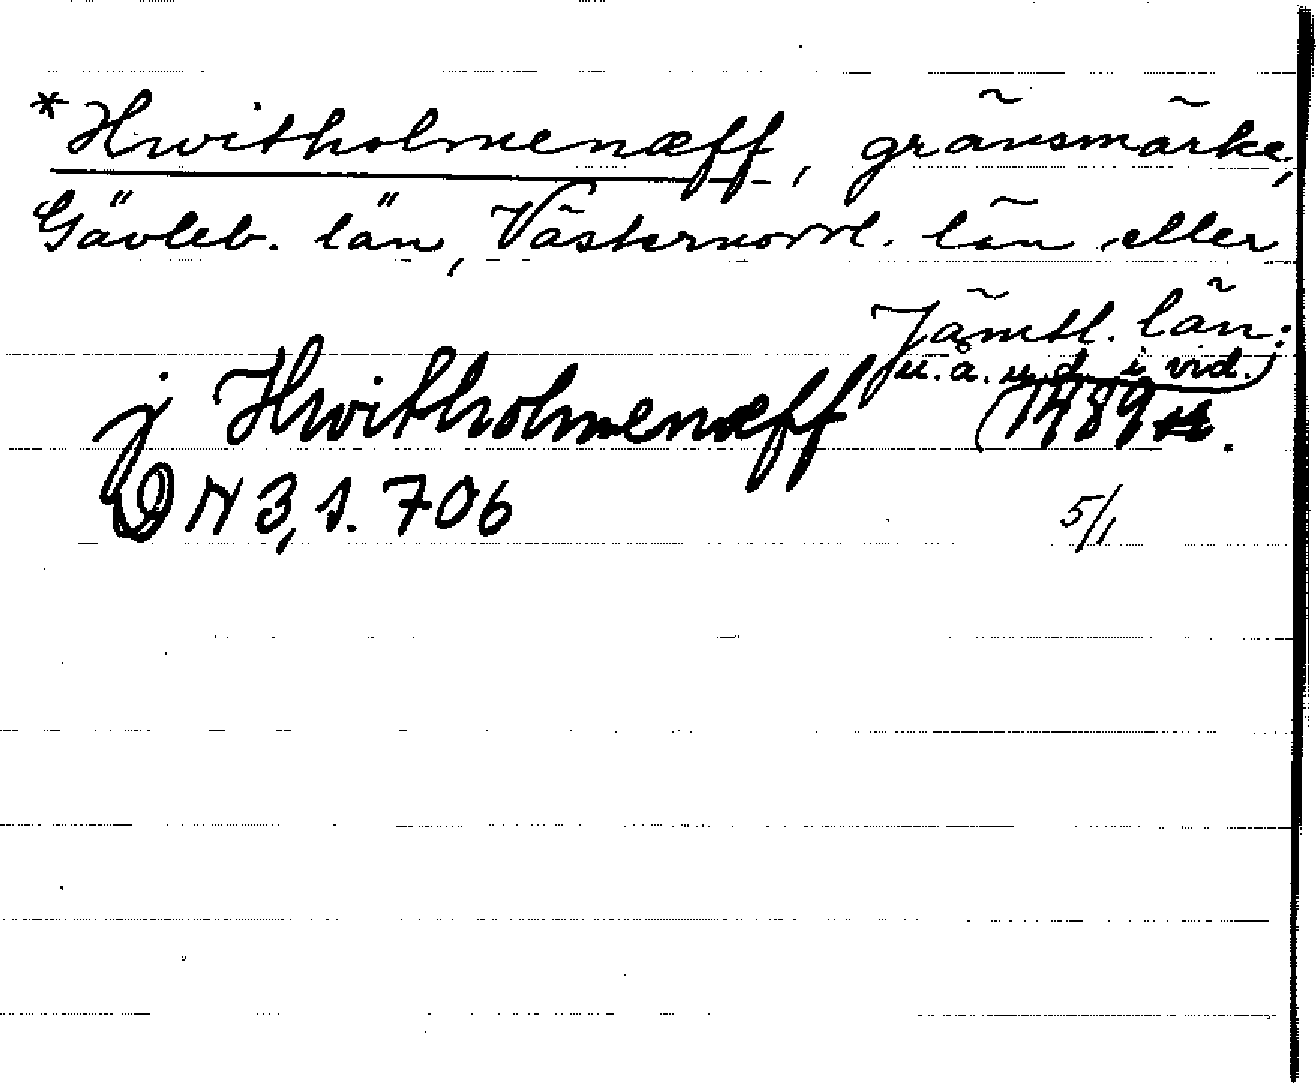 *Hwitholmenæff, gränsmärke,
Gävleb. län, Västernorrl. län eller
Jämtl. län:
j Hwitholmenæff (1489
u.å. u.d. i vid.)
DN 3, s. 706
5/1